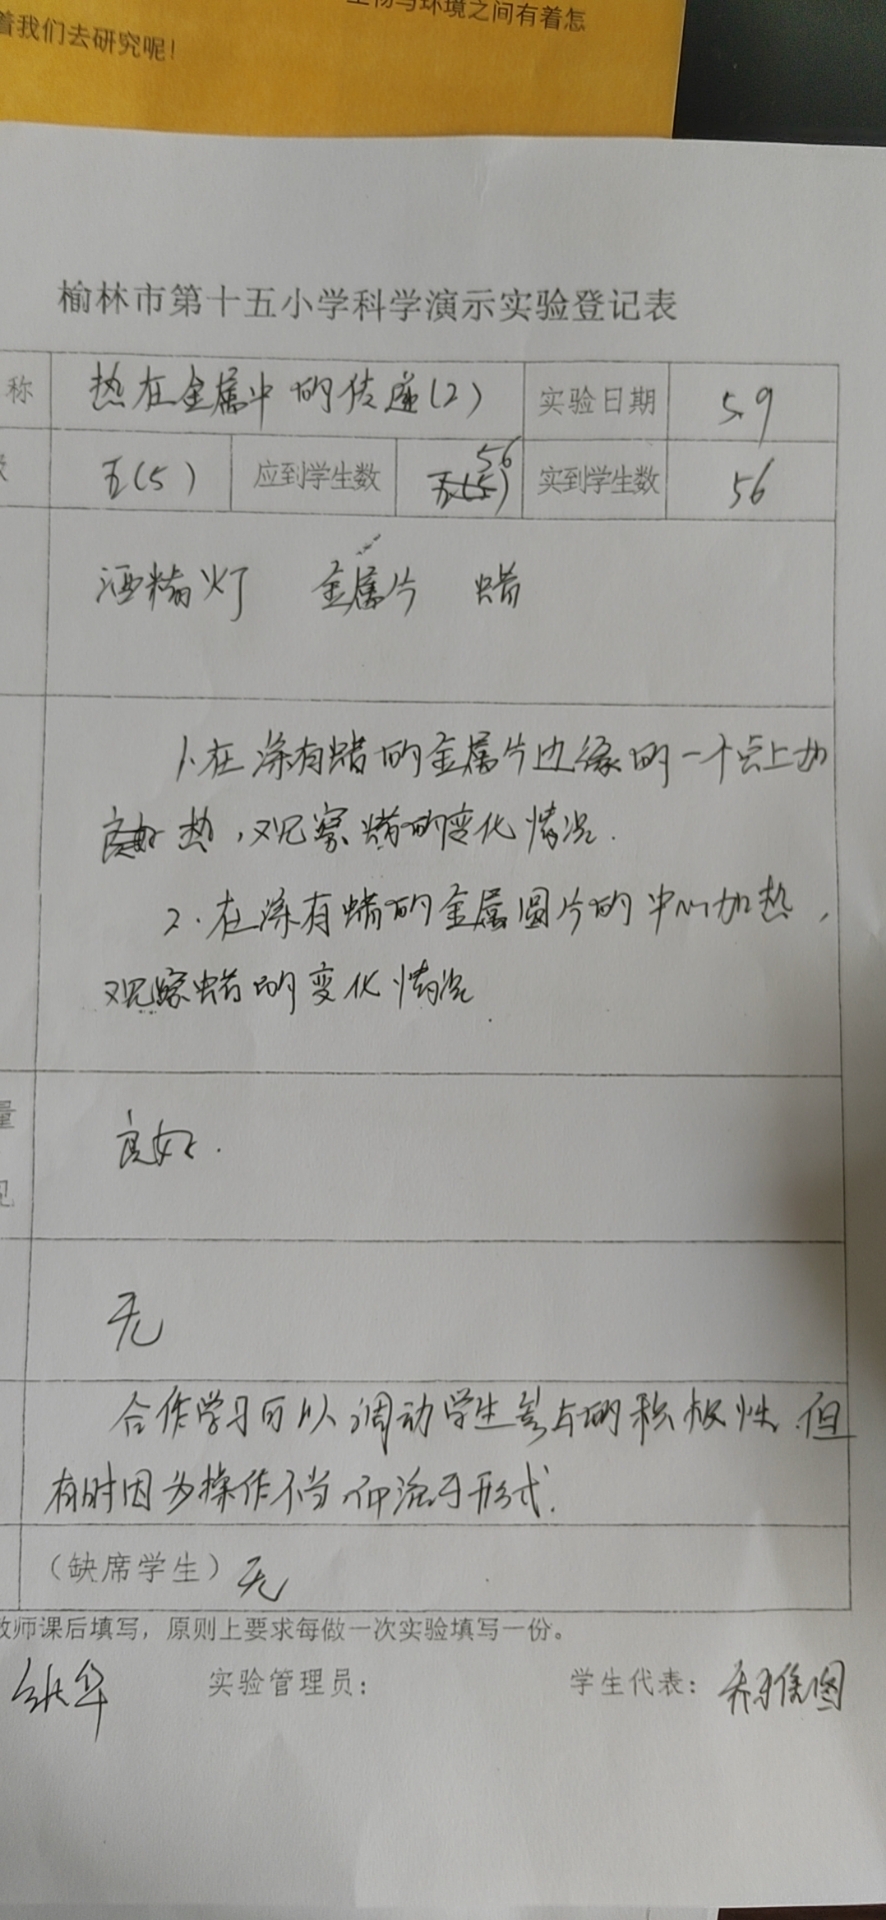 生物与环境之间有着怎
着我们去研究呢！
榆林市第十五小学科学演示实验登记表
称 热在金属中的传递(2) 实验日期 5.9
五(5) 应到学生数 56 实到学生数 56
酒精灯 金属片 蜡
1.在涂有蜡的金属片边缘的一个点上加
热，观察蜡的变化情况.
2.在涂有蜡的金属圆片的中心加热，
观察蜡的变化情况
量
见
良好.
无
合作学习可以调动学生参与的积极性.但
有时因为操作不当,流于形式.
（缺席学生）无
教师课后填写，原则上要求每做一次实验填写一份。
华 实验管理员： 学生代表：